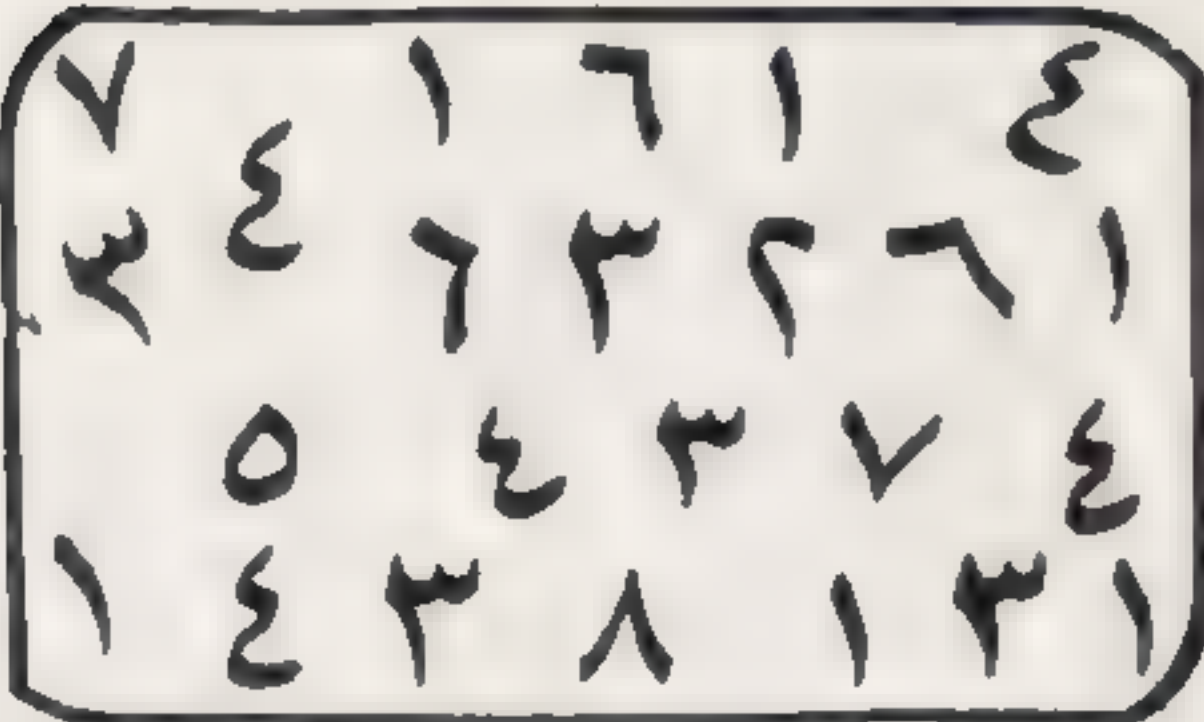 ٧ ٤ ١ ٦ ١ ٤
٣ ٦ ٣ ٢ ٦ ١
٥ ٤ ٣ ٧ ٤
١ ٤ ٣ ٨ ١ ٣ ١